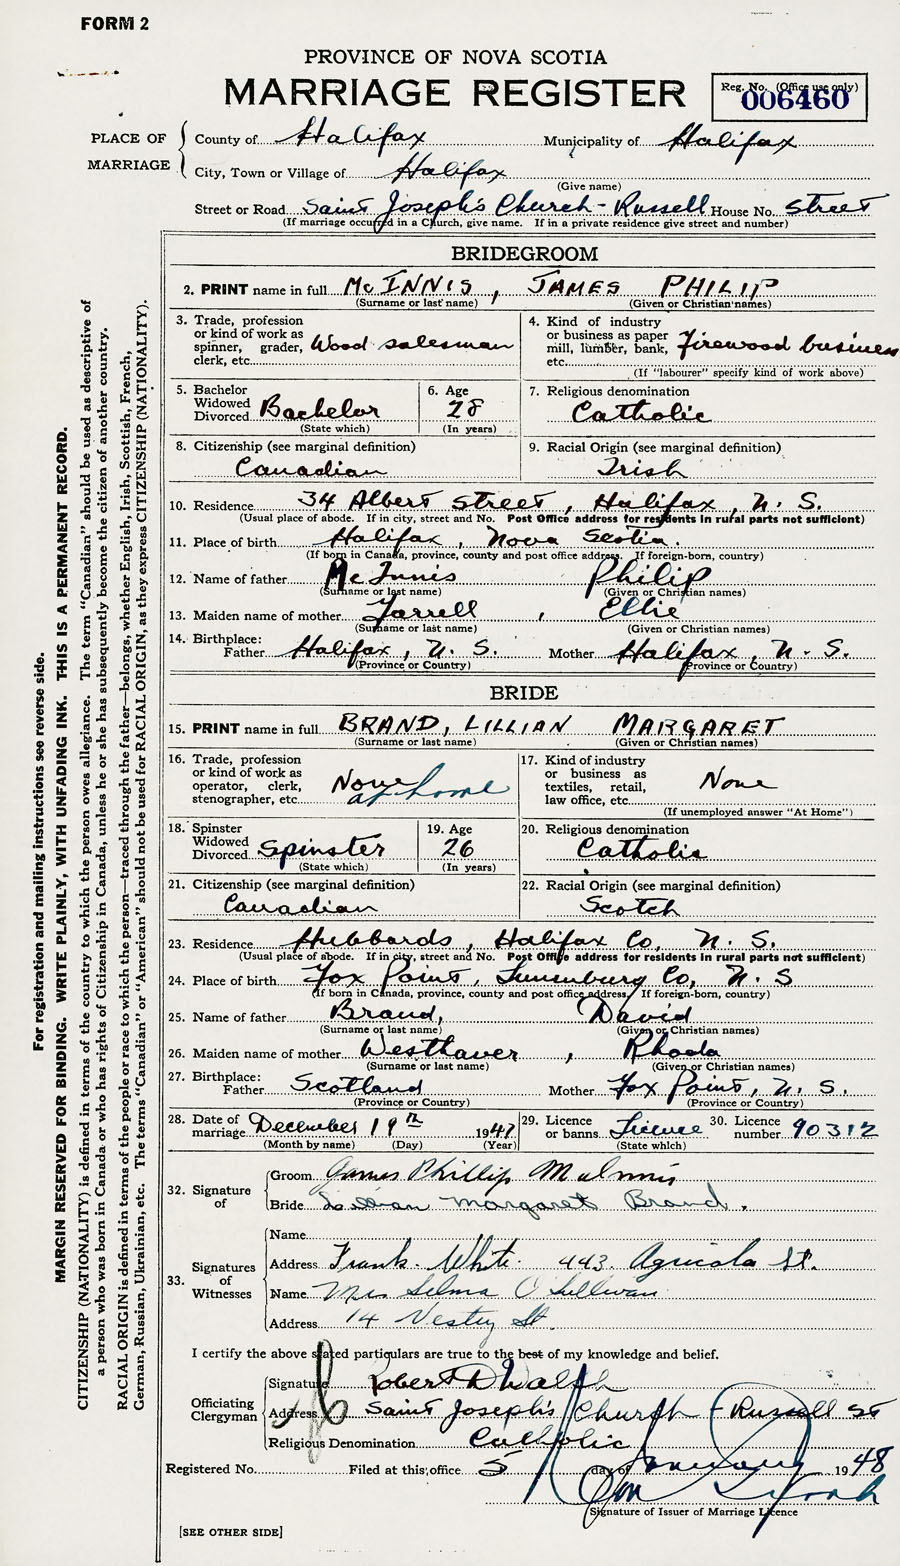 FORM 2
PROVINCE OF NOVA SCOTIA
MARRIAGE REGISTER
Reg. No. (Office use only)
006460
PLACE OF MARRIAGE
County of Halifax Municipality of Halifax
City, Town or Village of Halifax
(Give name)
Street or Road Saint Joseph's Church - Russell House No. Street
(If marriage occurred in a Church, give name. If in a private residence give street and number)
BRIDEGROOM
2. PRINT name in full McINNIS, JAMES PHILIP
(Surname or last name) (Given or Christian names)
3. Trade, profession or kind of work as spinner, grader, clerk, etc. Wood salesman
4. Kind of industry or business as paper mill, lumber, bank, etc. Firewood business
(If "labourer" specify kind of work above)
5. Bachelor Widowed Divorced Bachelor
(State which)
6. Age 28
(In years)
7. Religious denomination Catholic
8. Citizenship (see marginal definition) Canadian
9. Racial Origin (see marginal definition) Irish
10. Residence 34 Albert Street, Halifax, N. S.
(Usual place of abode. If in city, street and No. Post Office address for residents in rural parts not sufficient)
11. Place of birth Halifax, Nova Scotia.
(If born in Canada, province, county and post office address. If foreign-born, country)
12. Name of father McInnis Philip
(Surname or last name) (Given or Christian names)
13. Maiden name of mother Farrell, Ellie
(Surname or last name) (Given or Christian names)
14. Birthplace: Father Halifax, N. S. Mother Halifax, N. S.
(Province or Country) (Province or Country)
BRIDE
15. PRINT name in full BRAND, LILLIAN MARGARET
(Surname or last name) (Given or Christian names)
16. Trade, profession or kind of work as operator, clerk, stenographer, etc. None at home
17. Kind of industry or business as textiles, retail, law office, etc. None
(If unemployed answer "At Home")
18. Spinster Widowed Divorced Spinster
(State which)
19. Age 26
(In years)
20. Religious denomination Catholic
21. Citizenship (see marginal definition) Canadian
22. Racial Origin (see marginal definition) Scotch
23. Residence Hubbards, Halifax Co, N. S.
(Usual place of abode. If in city, street and No. Post Office address for residents in rural parts not sufficient)
24. Place of birth Fox Point, Lunenburg Co, N. S
(If born in Canada, province, county and post office address. If foreign-born, country)
25. Name of father Brand, David
(Surname or last name) (Given or Christian names)
26. Maiden name of mother Westhaver, Rhoda
(Surname or last name) (Given or Christian names)
27. Birthplace: Father Scotland Mother Fox Point, N. S.
(Province or Country) (Province or Country)
28. Date of marriage December 19th 1947
(Month by name) (Day) (Year)
29. Licence or banns Licence
(State which)
30. Licence number 90312
32. Signature of
Groom James Phillip McInnis
Bride Lillian Margaret Brand.
33. Signatures of Witnesses
Name
Address Frank White. 443. Agricola St.
Name Mrs Selma O'Sullivan
Address 14 Vestry St.
I certify the above stated particulars are true to the best of my knowledge and belief.
Officiating Clergyman
Signature Robert D Walsh
Address Saint Joseph's Church - Russell St
Religious Denomination Catholic
Registered No. Filed at this office 5 day of January 1948
Signature of Issuer of Marriage Licence
[SEE OTHER SIDE]
For registration and mailing instructions see reverse side.
MARGIN RESERVED FOR BINDING. WRITE PLAINLY, WITH UNFADING INK. THIS IS A PERMANENT RECORD.
CITIZENSHIP (NATIONALITY) is defined in terms of the country to which the person owes allegiance. The term "Canadian" should be used as descriptive of
a person who was born in Canada or who has rights of Citizenship in Canada, unless he or she has subsequently become the citizen of another country.
RACIAL ORIGIN is defined in terms of the people or race to which the person—traced through the father—belongs, whether English, Irish, Scottish, French,
German, Russian, Ukrainian, etc. The terms "Canadian" or "American" should not be used for RACIAL ORIGIN, as they express CITIZENSHIP (NATIONALITY).